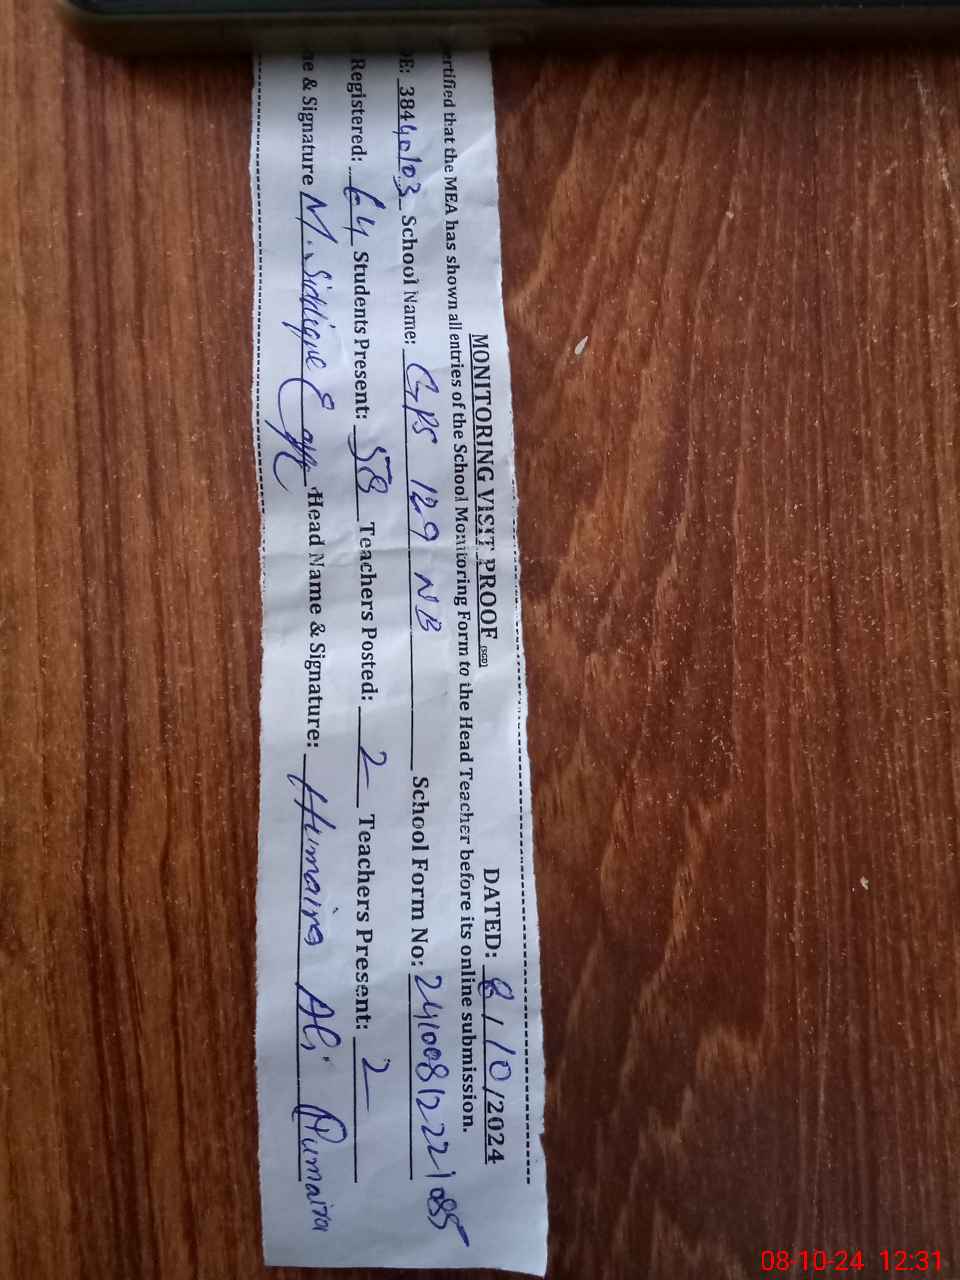 MONITORING VISIT PROOF (SGD) DATED: 8/10/2024
ertified that the MEA has shown all entries of the School Monitoring Form to the Head Teacher before its online submission.
E: 38440103 School Name: GPS 129 NB School Form No: 24100812221085
Registered: 64 Students Present: 58 Teachers Posted: 2 Teachers Present: 2
ne & Signature M. Siddique Head Name & Signature: Humaira Ali Humaira
08-10-24 12:31